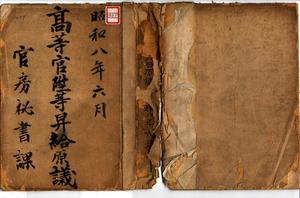 昭和八年六月
高等官陞等昇給原議
官房秘書課